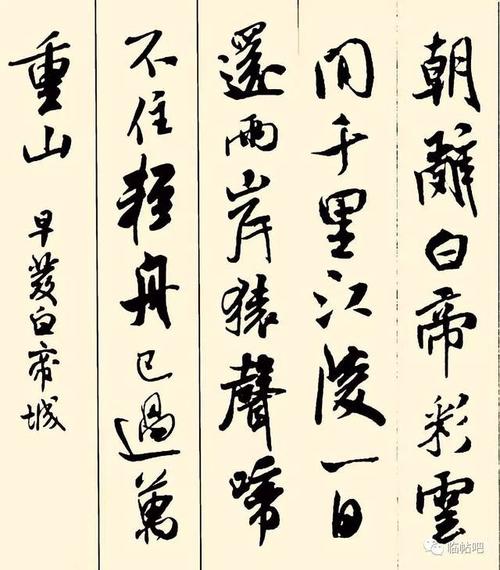 朝辭白帝彩雲
間千里江陵一日
還兩岸猿聲啼
不住輕舟已過萬
重山
早發白帝城
临帖吧